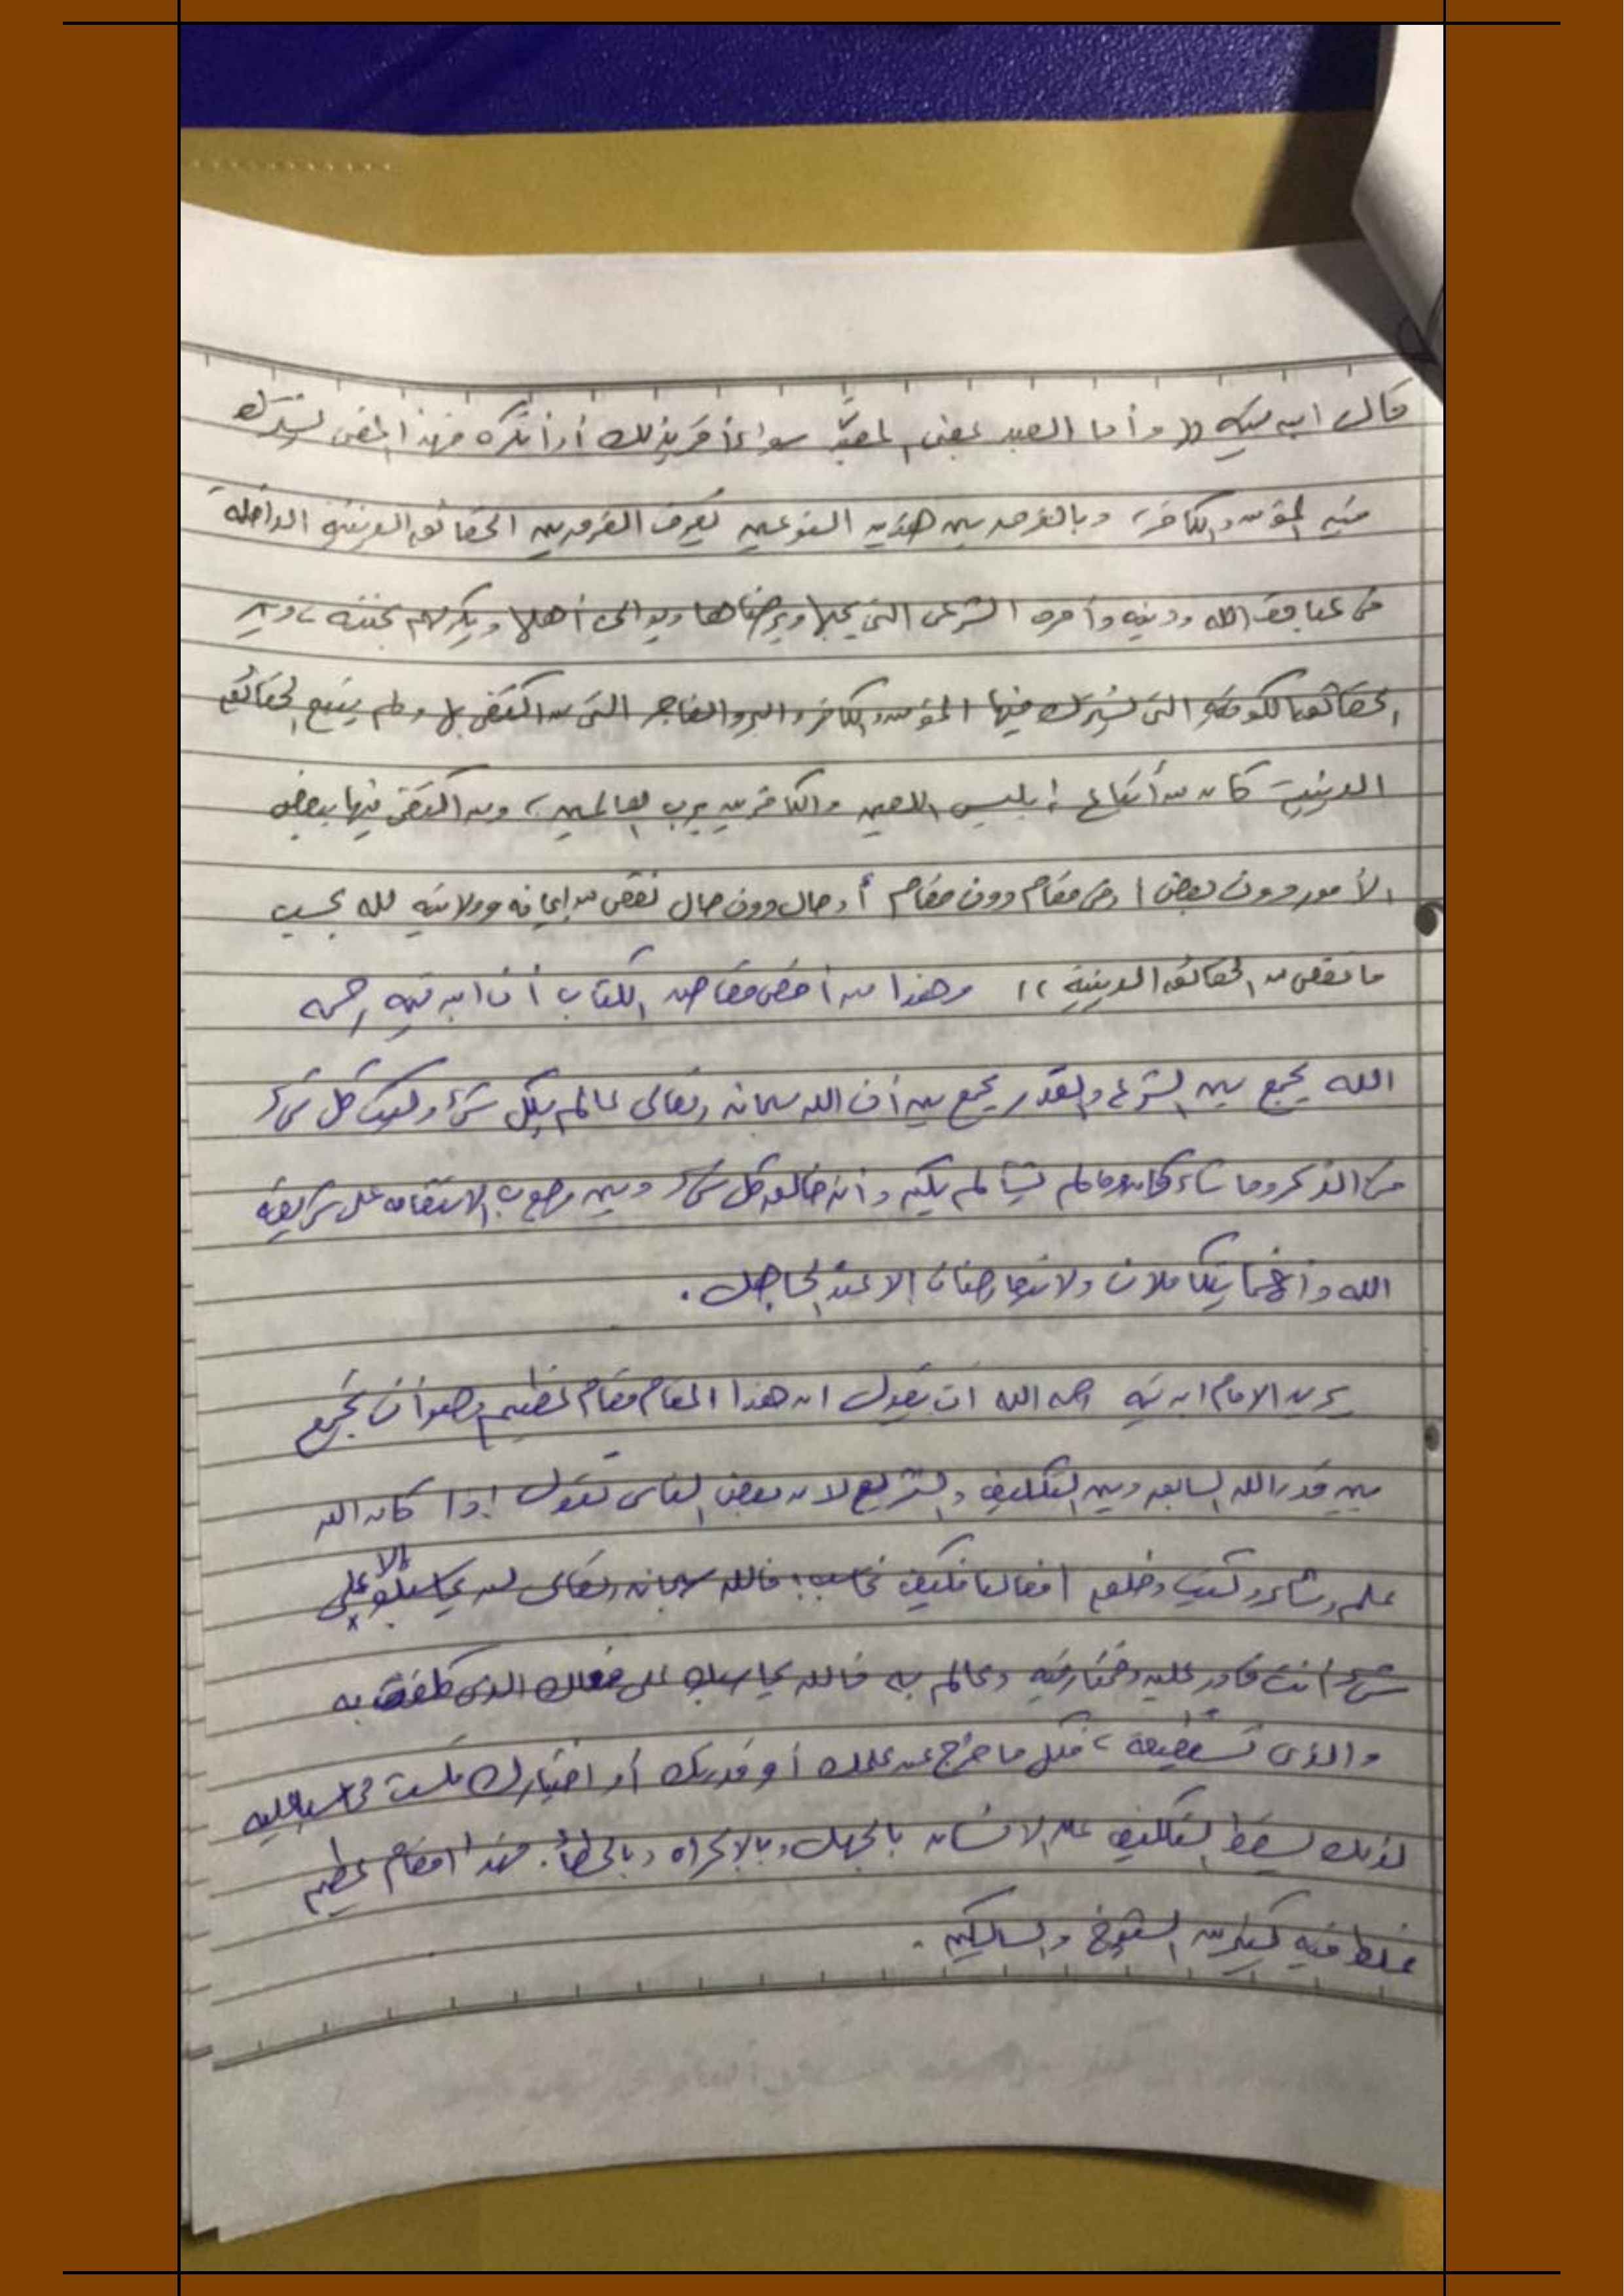 قال ابن تيمية (( وأما العبد بمعنى المعبَّد سواء أقر بذلك أو أنكره فهذا المعنى يشترك
فيه المؤمن والكافر، وبالفرق بين هذين النوعين يعرف الفرق بين الحقائق الدينية الداخلة
في عبادة الله ودينه وأمره الشرعي التي يحبها ويرضاها ويوالي أهلها ويكرمهم بجنته، وبين
الحقائق الكونية التي يشترك فيها المؤمن والكافر والبر والفاجر التي من اكتفى بها ولم يتبع الحقائق
الدينية كان من أتباع إبليس اللعين والكافرين برب العالمين، ومن اكتفى فيها ببعض
الأمور دون بعض أو في مقام دون مقام أو حال دون حال نقص من إيمانه وولايته لله بحسب
ما نقص من الحقائق الدينية )) وهذا من أخص مقاصد الكتاب أن ابن تيمية رحمه
الله يجمع بين الشرع والقدر يجمع بين أن الله سبحانه وتعالى عالم بكل شيء وكتب كل شيء
في الذكر وما شاء كان وما لم يشأ لم يكن وأنه خالق كل شيء وبين وجوب الاستقامة على شريعة
الله وأنهما يتكاملان ولا يتعارضان الا عند الجاهل.
يريد الامام ابن تيمية رحمه الله ان يقول ان هذا المقام مقام عظيم وهو أن تجمع
بين قدر الله السابق وبين التكليف والتشريع لان بعض الناس تقول إذا كان الله
علم وشاء وكتب وخلق افعالنا فكيف نحاسب؛ فالله سبحانه وتعالى لن يحاسبك إلا على
شيء انت قادر عليه ومختار فيه وعالم به فالله يحاسبك على فعلك الذي كلفت به
والذي تستطيعه، فكل ما خرج عن علمك أو قدرتك أو اختيارك فلست محاسب عليه
لذلك يسقط التكليف عن الانسان بالجهل وبالإكراه وبالخطأ. فهذا مقام عظيم
غلط فيه كثير من الشيوخ والسالكين.